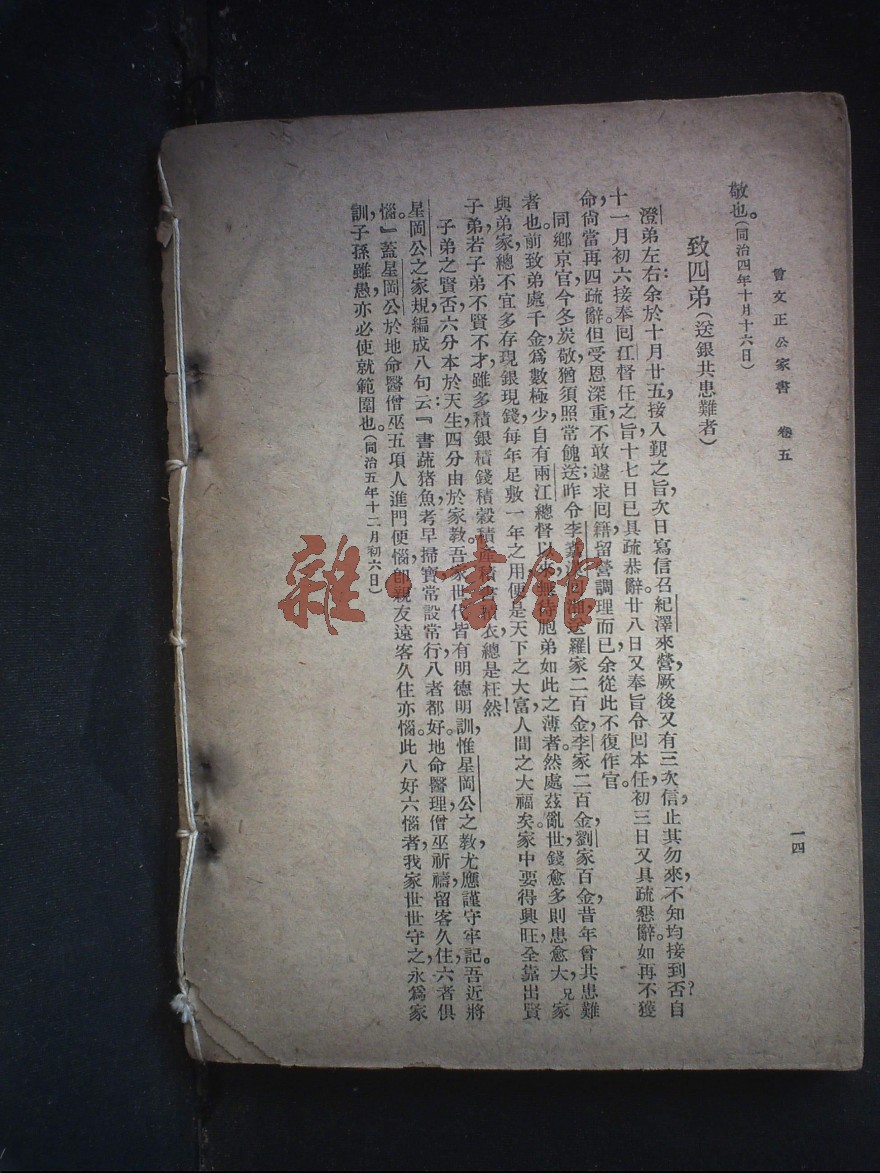 曾文正公家書　卷五
一四
敬也。(同治四年十月十六日)
致四弟(送銀共患難者)
澄弟左右:余於十月廿五,接入覲之旨,次日寫信召紀澤來營,厥後又有三次信,止其勿來,不知均接到否?自
十一月初六接奉囘江督任之旨,十七日已具疏恭辭,廿八日又奉旨令囘本任,初三日又具疏懇辭。如再不獲
命,尙當再四疏辭。但受恩深重,不敢遽求囘籍,留營調理而已,余從此不復作官。
同鄕京官,今冬炭敬,猶須照常餽送;昨令李 囘湘送羅家二百金,李家二百金,劉家百金,昔年曾共患難
者也。前致弟處千金,爲數極少,自有兩江總督以來,無待胞弟如此之薄者。然處茲亂世,錢愈多則患愈大,兄家
與弟家總不宜多存現銀現錢,每年足敷一年之用,便是天下之大富,人間之大福矣。家中要得興旺,全靠出賢
子弟,若子弟不賢不才,雖多積銀積錢積穀積產積書積衣,總是枉然!
子弟之賢否,六分本於天生,四分由於家教。吾家世代皆有明德明訓,惟星岡公之教,尤應謹守牢記。吾近將
星岡公之家規,編成八句云:『書蔬猪魚,考早掃寶,常設常行,八者都好。地命醫理,僧巫祈禱,留客久住,六者俱
惱。』蓋星岡公於地命醫僧巫五項人,進門便惱,卽親友遠客久住亦惱。此八好六惱者,我家世世守之,永爲家
訓,子孫雖愚,亦必使就範圍也。(同治五年十二月初六日)
雜·書館